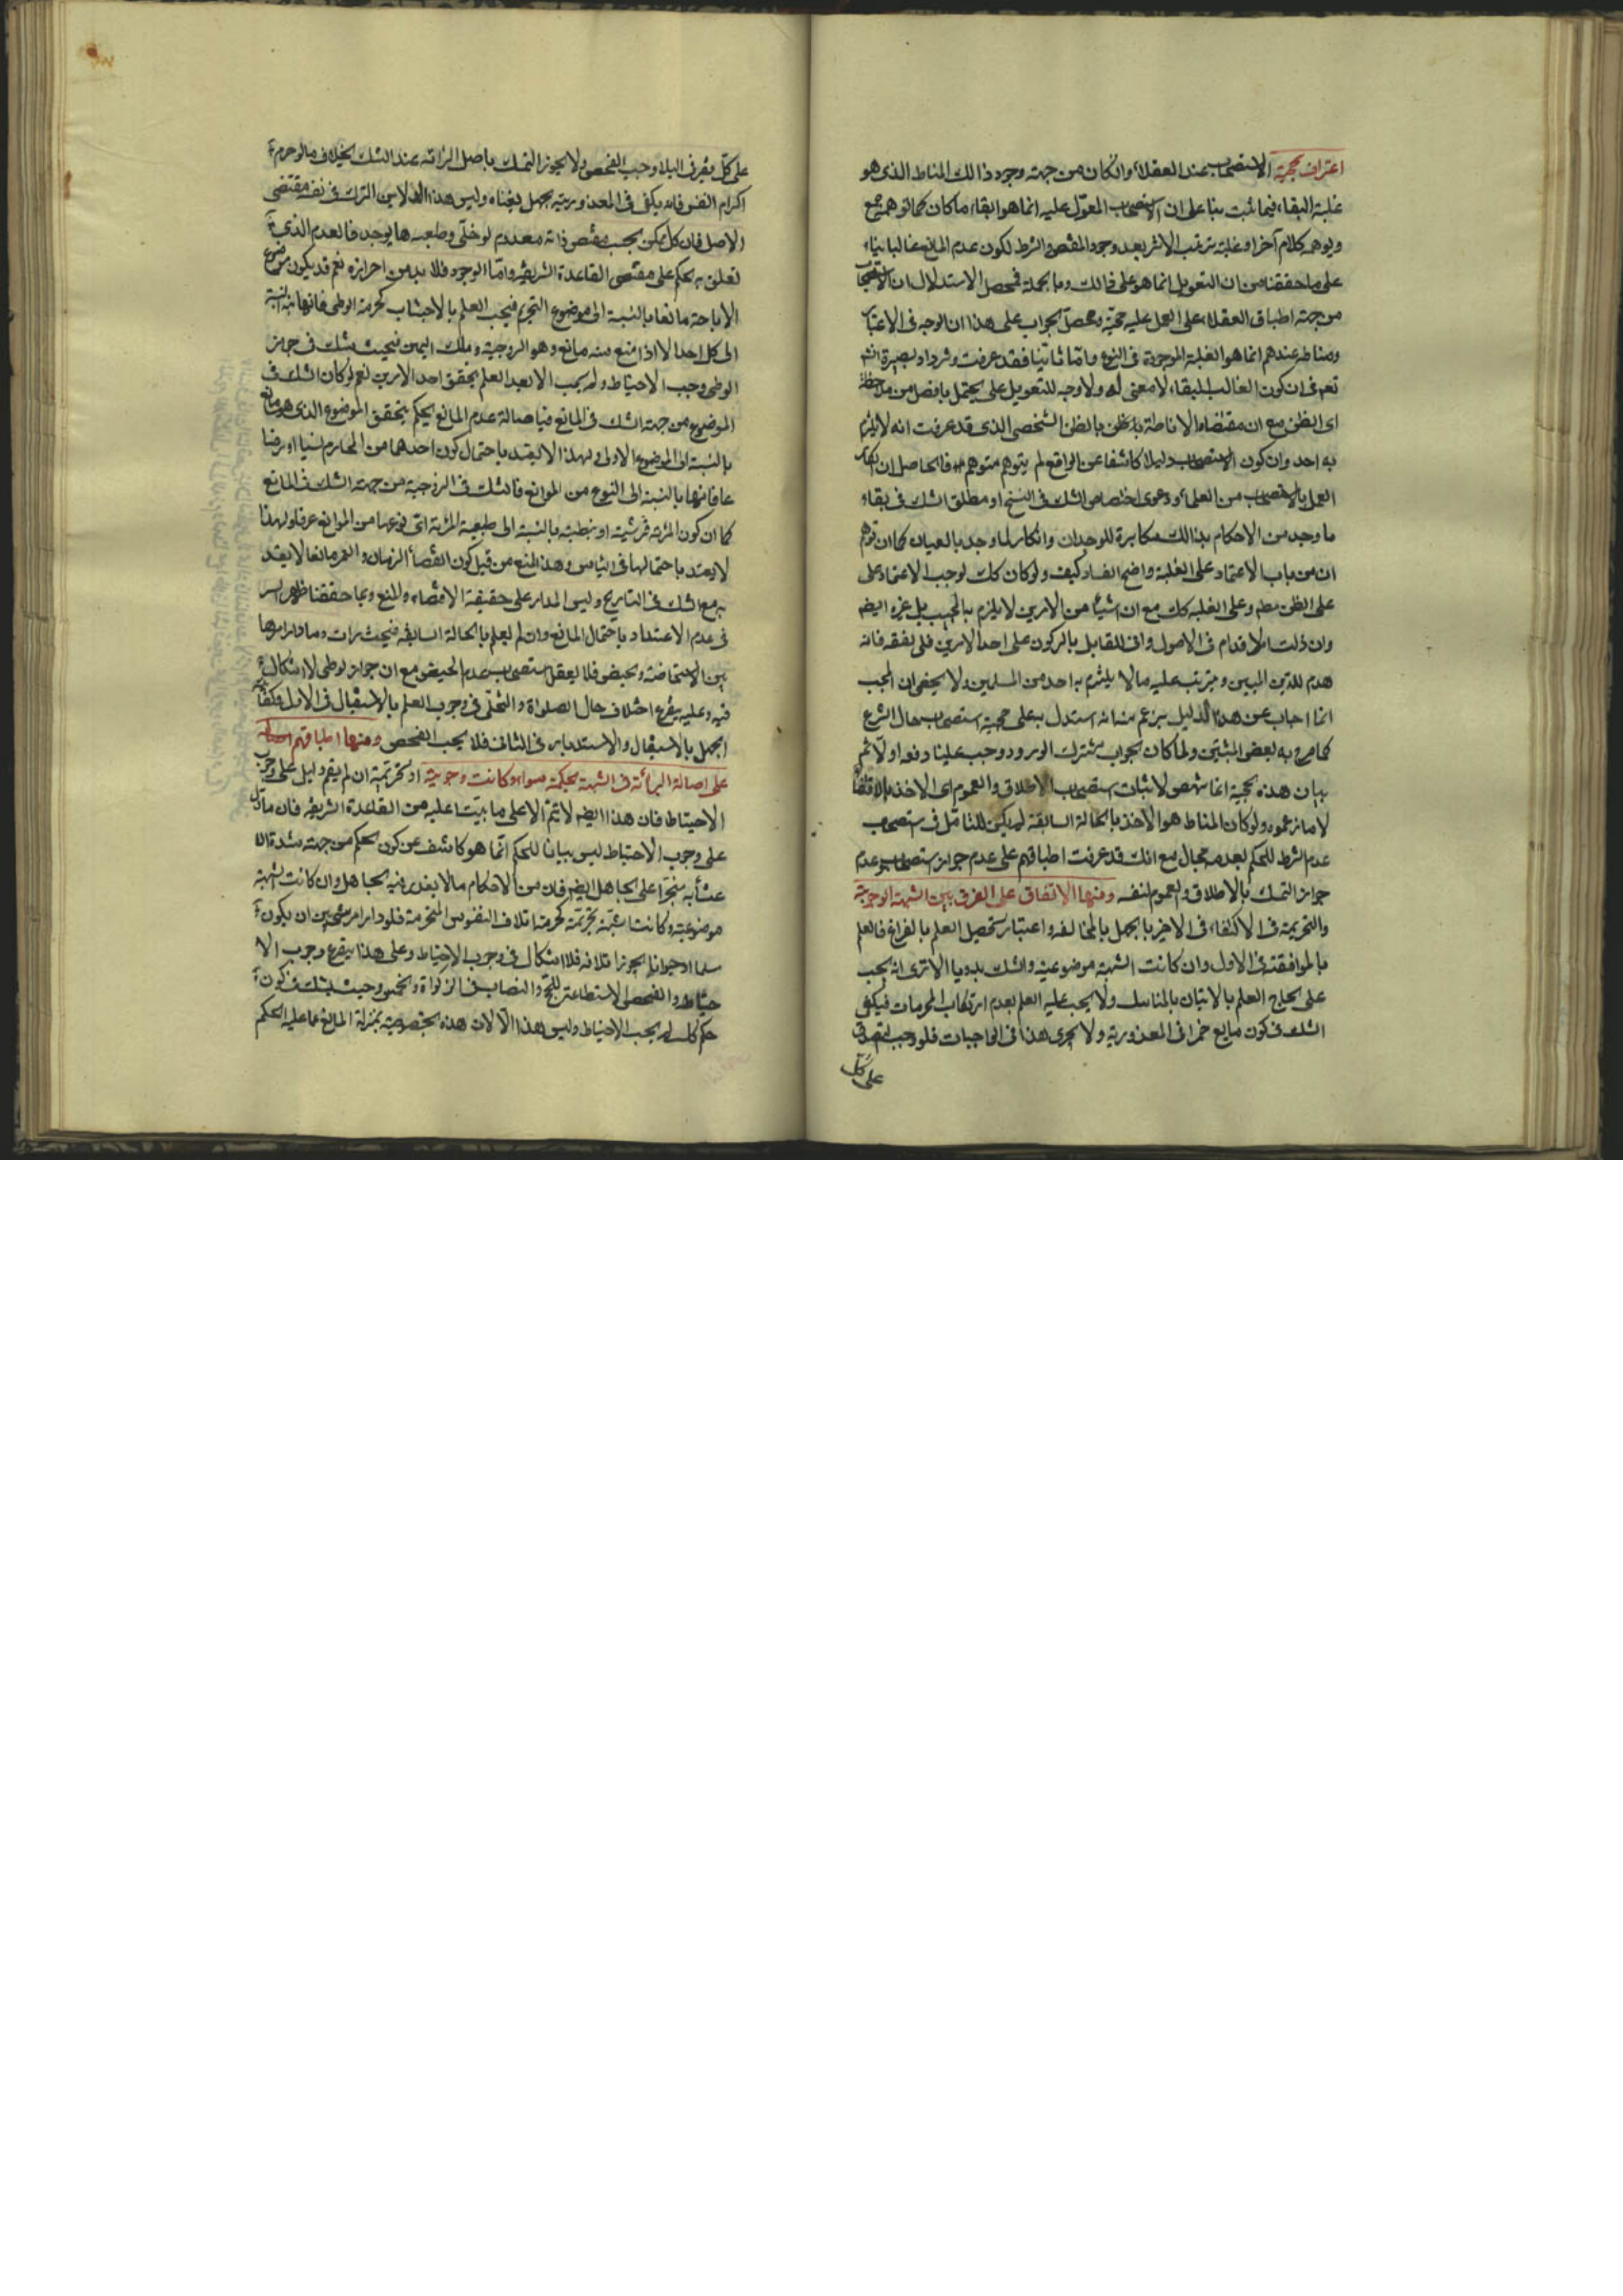 اعتراف بحجية الاستصحاب عند العقلاء وان كان من جهته وجود ذالك المناط الذى هو
غلبة البقاء فيما ثبت بناء على ان الاستصحاب المعول عليه انما هو ابقاء ما كان كما توهمه جمع
ويوهمه كلام آخر او غلبة ترتب الاثر بعد وجود المقتضى والشرط لكون عدم المانع غالبا بناء
على ما حققنا من ان التعويل انما هو على ذالك وبالجملة فمحصل الاستدلال ان الاستصحاب
من جهته اطباق العقلاء على العمل عليه حجة ومحصل الجواب على هذا ان الوجه فى الاعتبار
ومناطه عندهم انما هو الغلبة الموجودة فى النوع واما ثانيا فقد عرفت وتزداد بصيرة انشاء
تعم فى ان كون الغالب البقاء لا معنى له ولا وجه للتعويل على محتمل بافضل من ملاحظة
اى الظن مع ان مقتضاه الاناطة بالظن الشخصى الذى قد عرفت انه لا يلتزم
به احد وان كون الاستصحاب دليلا كاشفا عن الواقع لم يتوهم متوهم فالحاصل ان انكار
العمل بالاستصحاب من العلماء ودعوى اختصاص الشك فى النسخ او مطلق الشك فى بقاء
ما وجد من الاحكام بذالك مكابرة للوجدان وانكار لما وجد بالعيان كما ان توهم
ان من باب الاعتماد على الغلبة واضح الفساد كيف ولو كان كك لوجب الاعتماد على
على الظن مطم وعلى الغلبة كك مع ان شيئا من الامرين لا يلتزم به المجيب بل غيره ايضم
وان زلت الاقدام فى الاصول وافق المقابل بالركون على احد الامرين فلى بفقه فانه
هدم للدين المبين ويترتب عليه ما لا يلتزم به احد من المسلمين ولا يخفى ان المجيب
انما اجاب عن هذا الدليل بزعم منه انه استدل به على حجية استصحاب حال الشرع
كما صرح به بعض المثبتين ولما كان الجواب مشترك الورود وجب علينا دفعه اولا ثم
بيان هذه الحجية انما تنهض لاثبات استصحاب الاطلاق والعموم اى الاخذ بالاقتضاء
لا ما زعموه ولو كان المناط هو الاخذ بالحالة السابقة لم يكن للتامل فى استصحاب
عدم الشرط للحكم بعدمه مجال مع انك قد عرفت اطباقهم على عدم جواز استصحاب عدم
جواز التمسك بالاطلاق والعموم لنفسه ومنها الاتفاق على الفرق بين الشبهة الوجوبية
والتحريمية فى الاكتفاء فى الاخير بالجهل بالمخالفة واعتبار تحصيل العلم بالفراغ فالعلم
بالموافقة فى الاول وان كانت الشبهة موضوعية والشك بدويا الا ترى انه يجب
على الحاج العلم بالاتيان بالمناسك ولا يجب عليه العلم بعدم ارتكاب المحرمات فيكفى
الشك فى كون مايع خمرا فى المعذورية ولا يجرى هذا فى الواجبات فلو وجب التصدق
على كل
على كل فقير فى البلد وجب الفحص ولا يجوز التمسك باصل البرائة عند الشك بخلاف ما لو حرم
اكرام الفسق فانه يكفى فى المعذورية جهل بغناه وليس هذا الا لان الترك فى نفسه مقتضى
الاصل فان كل ممكن بحسب مقتضى ذاته معدوم لو خلى وطبعه ما يوجد فالعدم الذى
تعلق به الحكم على مقتضى القاعدة الشريفة واما الوجود فلا بد من احرازه نعم قد يكون موضوع
الاباحة مانعا بالنسبة الى موضوع التحريم فيجب العلم بالاجتناب كحرمة الوطى فانها ثابتة بالنسبة
الى كل احد الا اذا منع منه مانع وهو الزوجية وملك اليمين فحيث شك فى جواز
الوطى وجب الاحتياط ولم يجب الا بعد العلم بتحقق احد الامرين نعم لو كان الشك فى
الموضوع من جهته الشك فى المانع فباصالة عدم المانع يحكم بتحقق الموضوع الذى هو مانع
بالنسبة الى الموضوع الاول ولهذا لا يعتد باحتمال كون احدهما من المحارم نسبا او رضا
عا فانها بالنسبة الى النوع من الموانع فالشك فى الزوجية من جهته الشك فى المانع
كما ان كون المرئة قرشية او نبطية بالنسبة الى طبيعة المرئة اى نوعها من الموانع عرفا ولهذا
لا يعتد باحتمالها فى اليأس وهذا المنع من قبيل كون انقضاء الزمان والعمر مانعا لا يعتد
به مع الشك فى التاريخ وليس المدار على حقيقة الاقتضاء والمنع وبما حققنا ظهر السر
فى عدم الاعتداد باحتمال المانع وان لم يعلم بالحالة السابقة فحيث رات دما ودار امرها
بين الاستحاضة والحيض فلا يعقل استصحاب عدم الحيض مع ان جواز الوطى لا اشكال
فيه وعليه يتفرع اختلاف حال الصلواة والتخلى فى وجوب العلم بالاستقبال فى الاول وكفاية
الجهل بالاستقبال والاستدبار فى الثانى فلا يجب الفحص ومنها اطباقهم
على اصالة البرائة فى الشبهة الحكمية سواء كانت وجوبية او تحريمية ان لم يقم دليل على وجوب
الاحتياط فان هذا ايضم لا يتم الا على ما بينا عليه من القاعدة الشريفة فان ما دل
على وجوب الاحتياط ليس بيانا للحكم انما هو كاشف عن كون الحكم من جهته شدة الا
عتناء به منجزا على الجاهل ايضم فان من الاحكام ما لا يعذر فيه الجاهل وان كانت الشبهة
موضوعية وكانت الشبهة تحريمية كحرمة اتلاف النفوس المحترمة فلو دار امر شئ بين ان يكون
مسلما او حيوانا يجوز اتلافه فلا اشكال فى وجوب الاحتياط وعلى هذا يتفرع وجوب الا
حتياط والفحص الاستطاعة للحج والنصاب فى الزكواة والخمس وحيث يشك فى كون
حكم كك لم يجب الاحتياط وليس هذا الا لان هذه الخصوصية بمنزلة المانع عما عليه الحكم